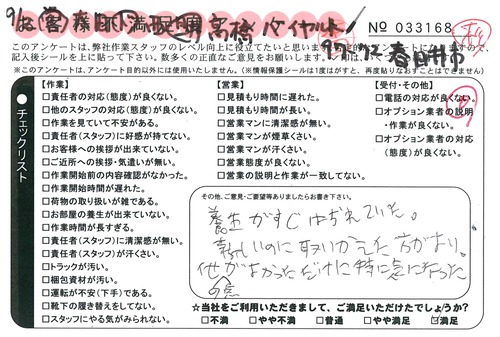 No 033168
このアンケートは、弊社作業スタッフのレベル向上に役立てたいと思います
記入後シールを上に貼って下さい。数多くのご正直なご意見をお願い
※このアンケートは、アンケート目的以外には使用いたしません。（※情報保護シールは1度がすと、再度貼りなおすことはできません）
チェックリスト
【作業】
□責任者の対応（態度）が良くない。
□他のスタッフの対応（態度）が良くない。
□作業を見ていて不安がある。
□責任者（スタッフ）に好感が持てない。
□お客様への挨拶が出来ていない。
□ご近所への挨拶・気遣いが無い。
□作業開始前の内容確認がなかった。
□作業開始時間が遅れた。
□荷物の取り扱いが雑である。
□お部屋の養生が出来ていない。
□作業時間が長すぎる。
□責任者（スタッフ）に清潔感が無い。
□責任者（スタッフ）が汗くさい。
□トラックが汚い。
□梱包資材が汚い。
□運転が不安（下手）である。
□靴下の履き替えをしてない。
□スタッフにやる気がみられない。
【営業】
□見積もり時間に遅れた。
□見積もり時間が長い。
□営業マンに清潔感が無い。
□営業マンが煙草くさい。
□営業マンが汗くさい。
□営業態度が良くない。
□営業の説明と作業が一致してない。
【受付・その他】
□電話の対応が良くない。
□オプション業者の説明
・作業が良くない。
□オプション業者の対応
（態度）が良くない。
その他、ご意見・ご要望等ありましたらお書き下さい。
養生がすじはずれていた。
新しいのに取りかえた方がよい。
他がよかっただけに特に気になった
の点
☆当社をご利用いただきまして、ご満足いただけたでしょうか?
□不満 □やや不満 □普通 □やや満足 ☑満足